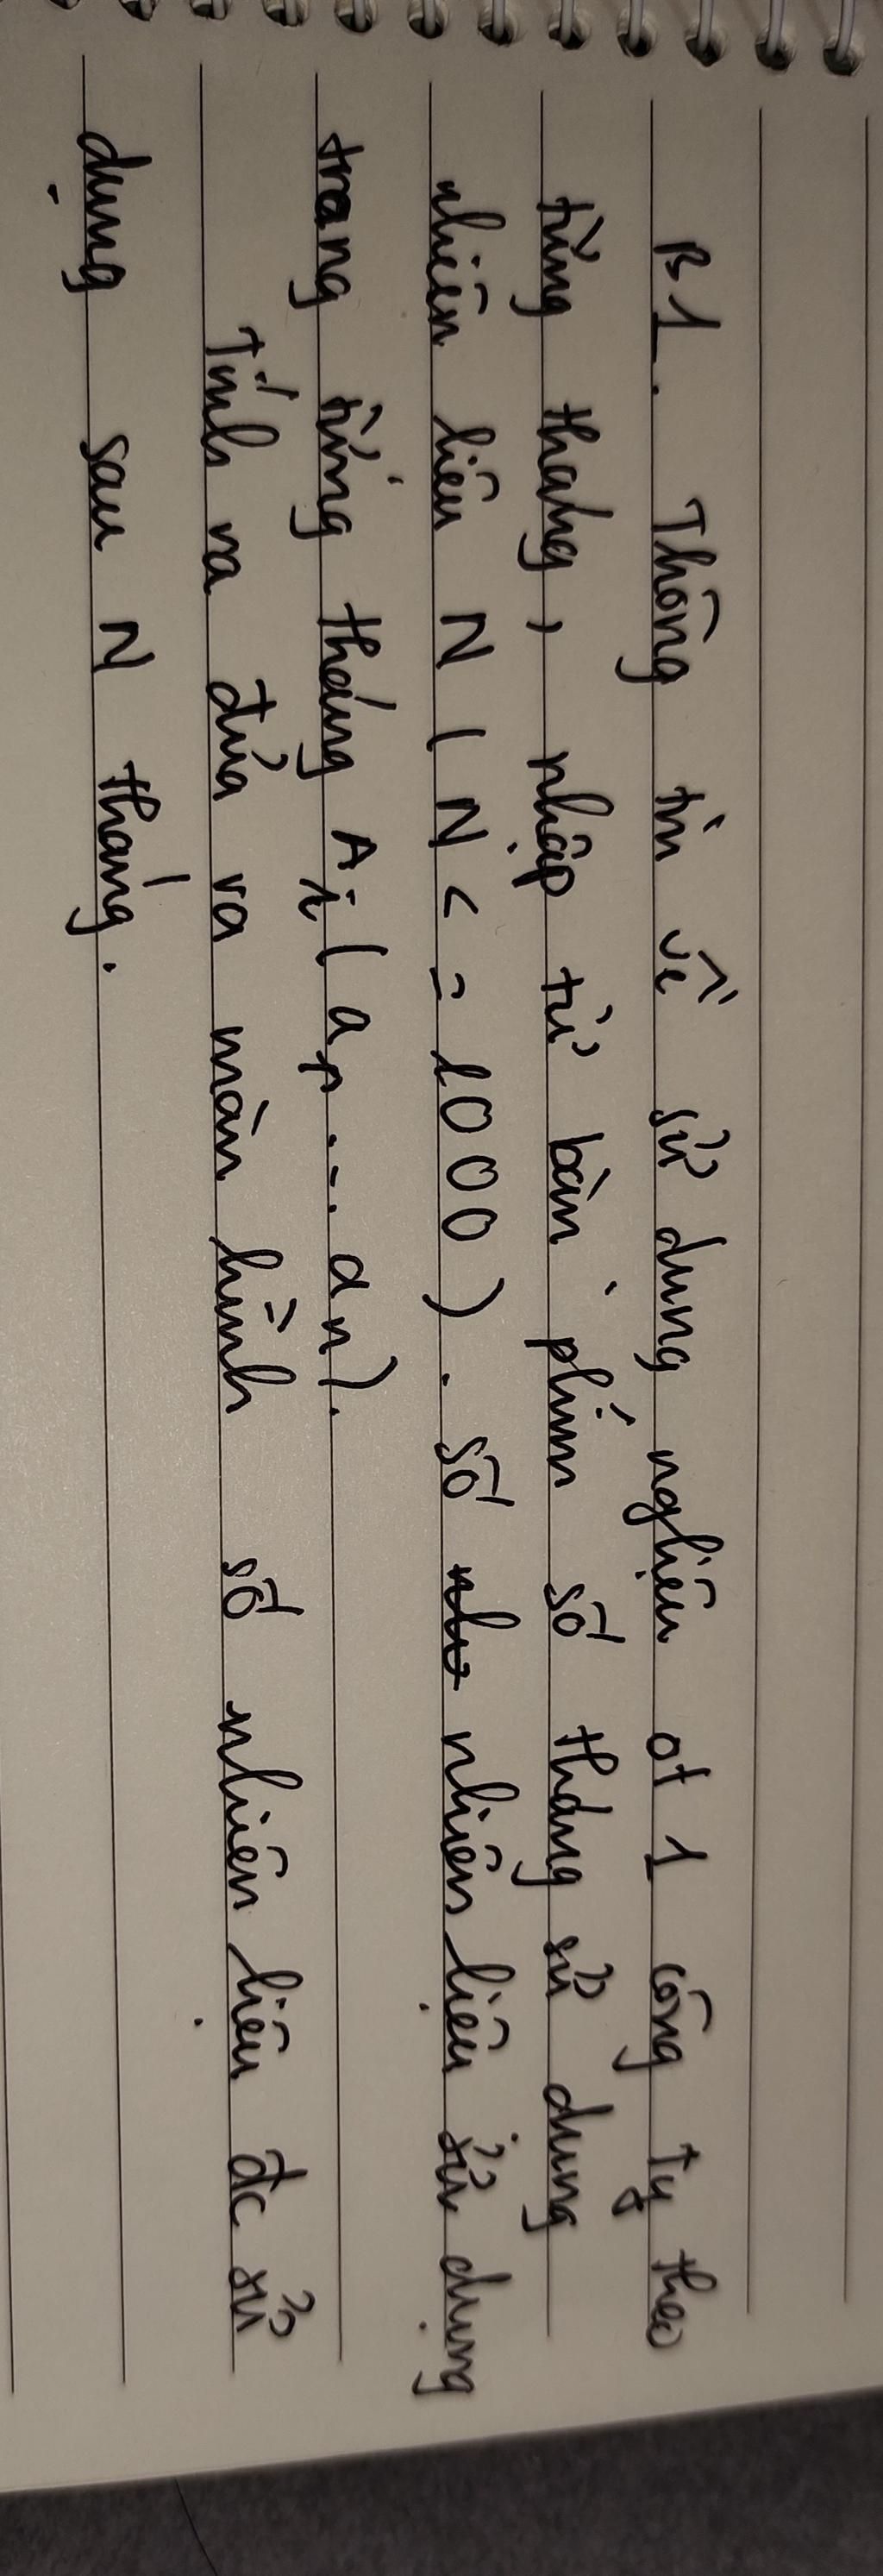 B1. Thông tin về sử dung nghiệu of 1 công ty theo
từng thang, nhập từ bàn phím số tháng sử dung
nhiên liêu N (N <= 1000). Số nhiên liệu sử dụng
trang từng tháng Ai (a1, ... an).
Tính va đưa ra màn hình số nhiên liệu đc sử
dụng sau N tháng.